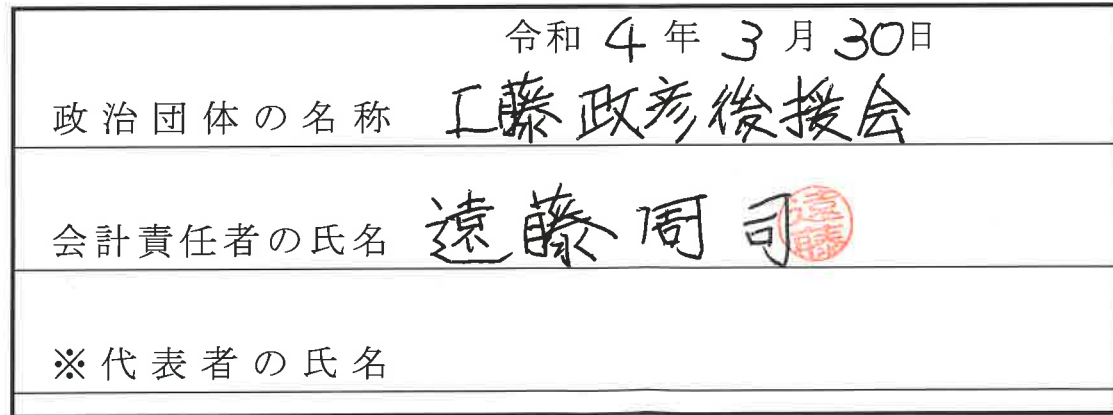 令和 4 年 3 月 30日
政治団体の名称 工藤政彦後援会
会計責任者の氏名 遠藤周司 遠藤
※代表者の氏名